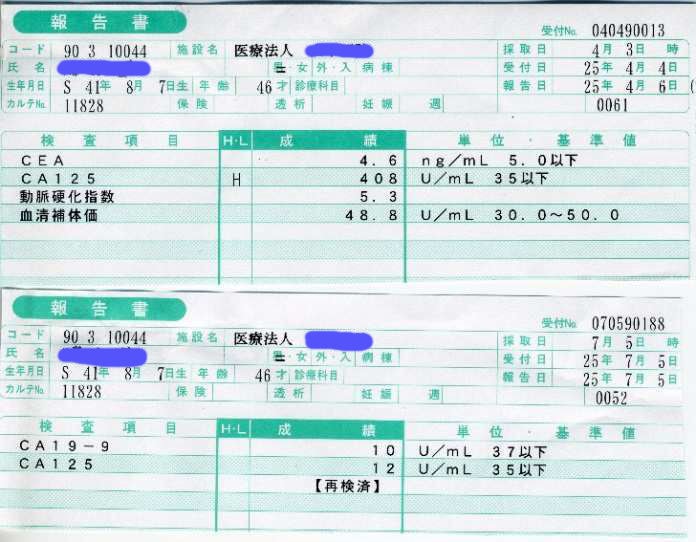 報告書
受付No. 040490013
コード 90 3 10044 施設名 医療法人 採取日 4月 3日 時
氏名 男・女 外・入 病棟 受付日 25年 4月 4日
生年月日 S 41年 8月 7日生 年齢 46才 診療科目 報告日 25年 4月 6日
カルテNo. 11828 保険 透析 妊娠 週 0061
検査項目 H・L 成績 単位・基準値
CEA 4.6 ng/mL 5.0以下
CA125 H 408 U/mL 35以下
動脈硬化指数 5.3
血清補体価 48.8 U/mL 30.0~50.0
報告書
受付No. 070590188
コード 90 3 10044 施設名 医療法人 採取日 7月 5日 時
氏名 男・女 外・入 病棟 受付日 25年 7月 5日
生年月日 S 41年 8月 7日生 年齢 46才 診療科目 報告日 25年 7月 5日
カルテNo. 11828 保険 透析 妊娠 週 0052
検査項目 H・L 成績 単位・基準値
CA19-9 10 U/mL 37以下
CA125 12 U/mL 35以下
【再検済】